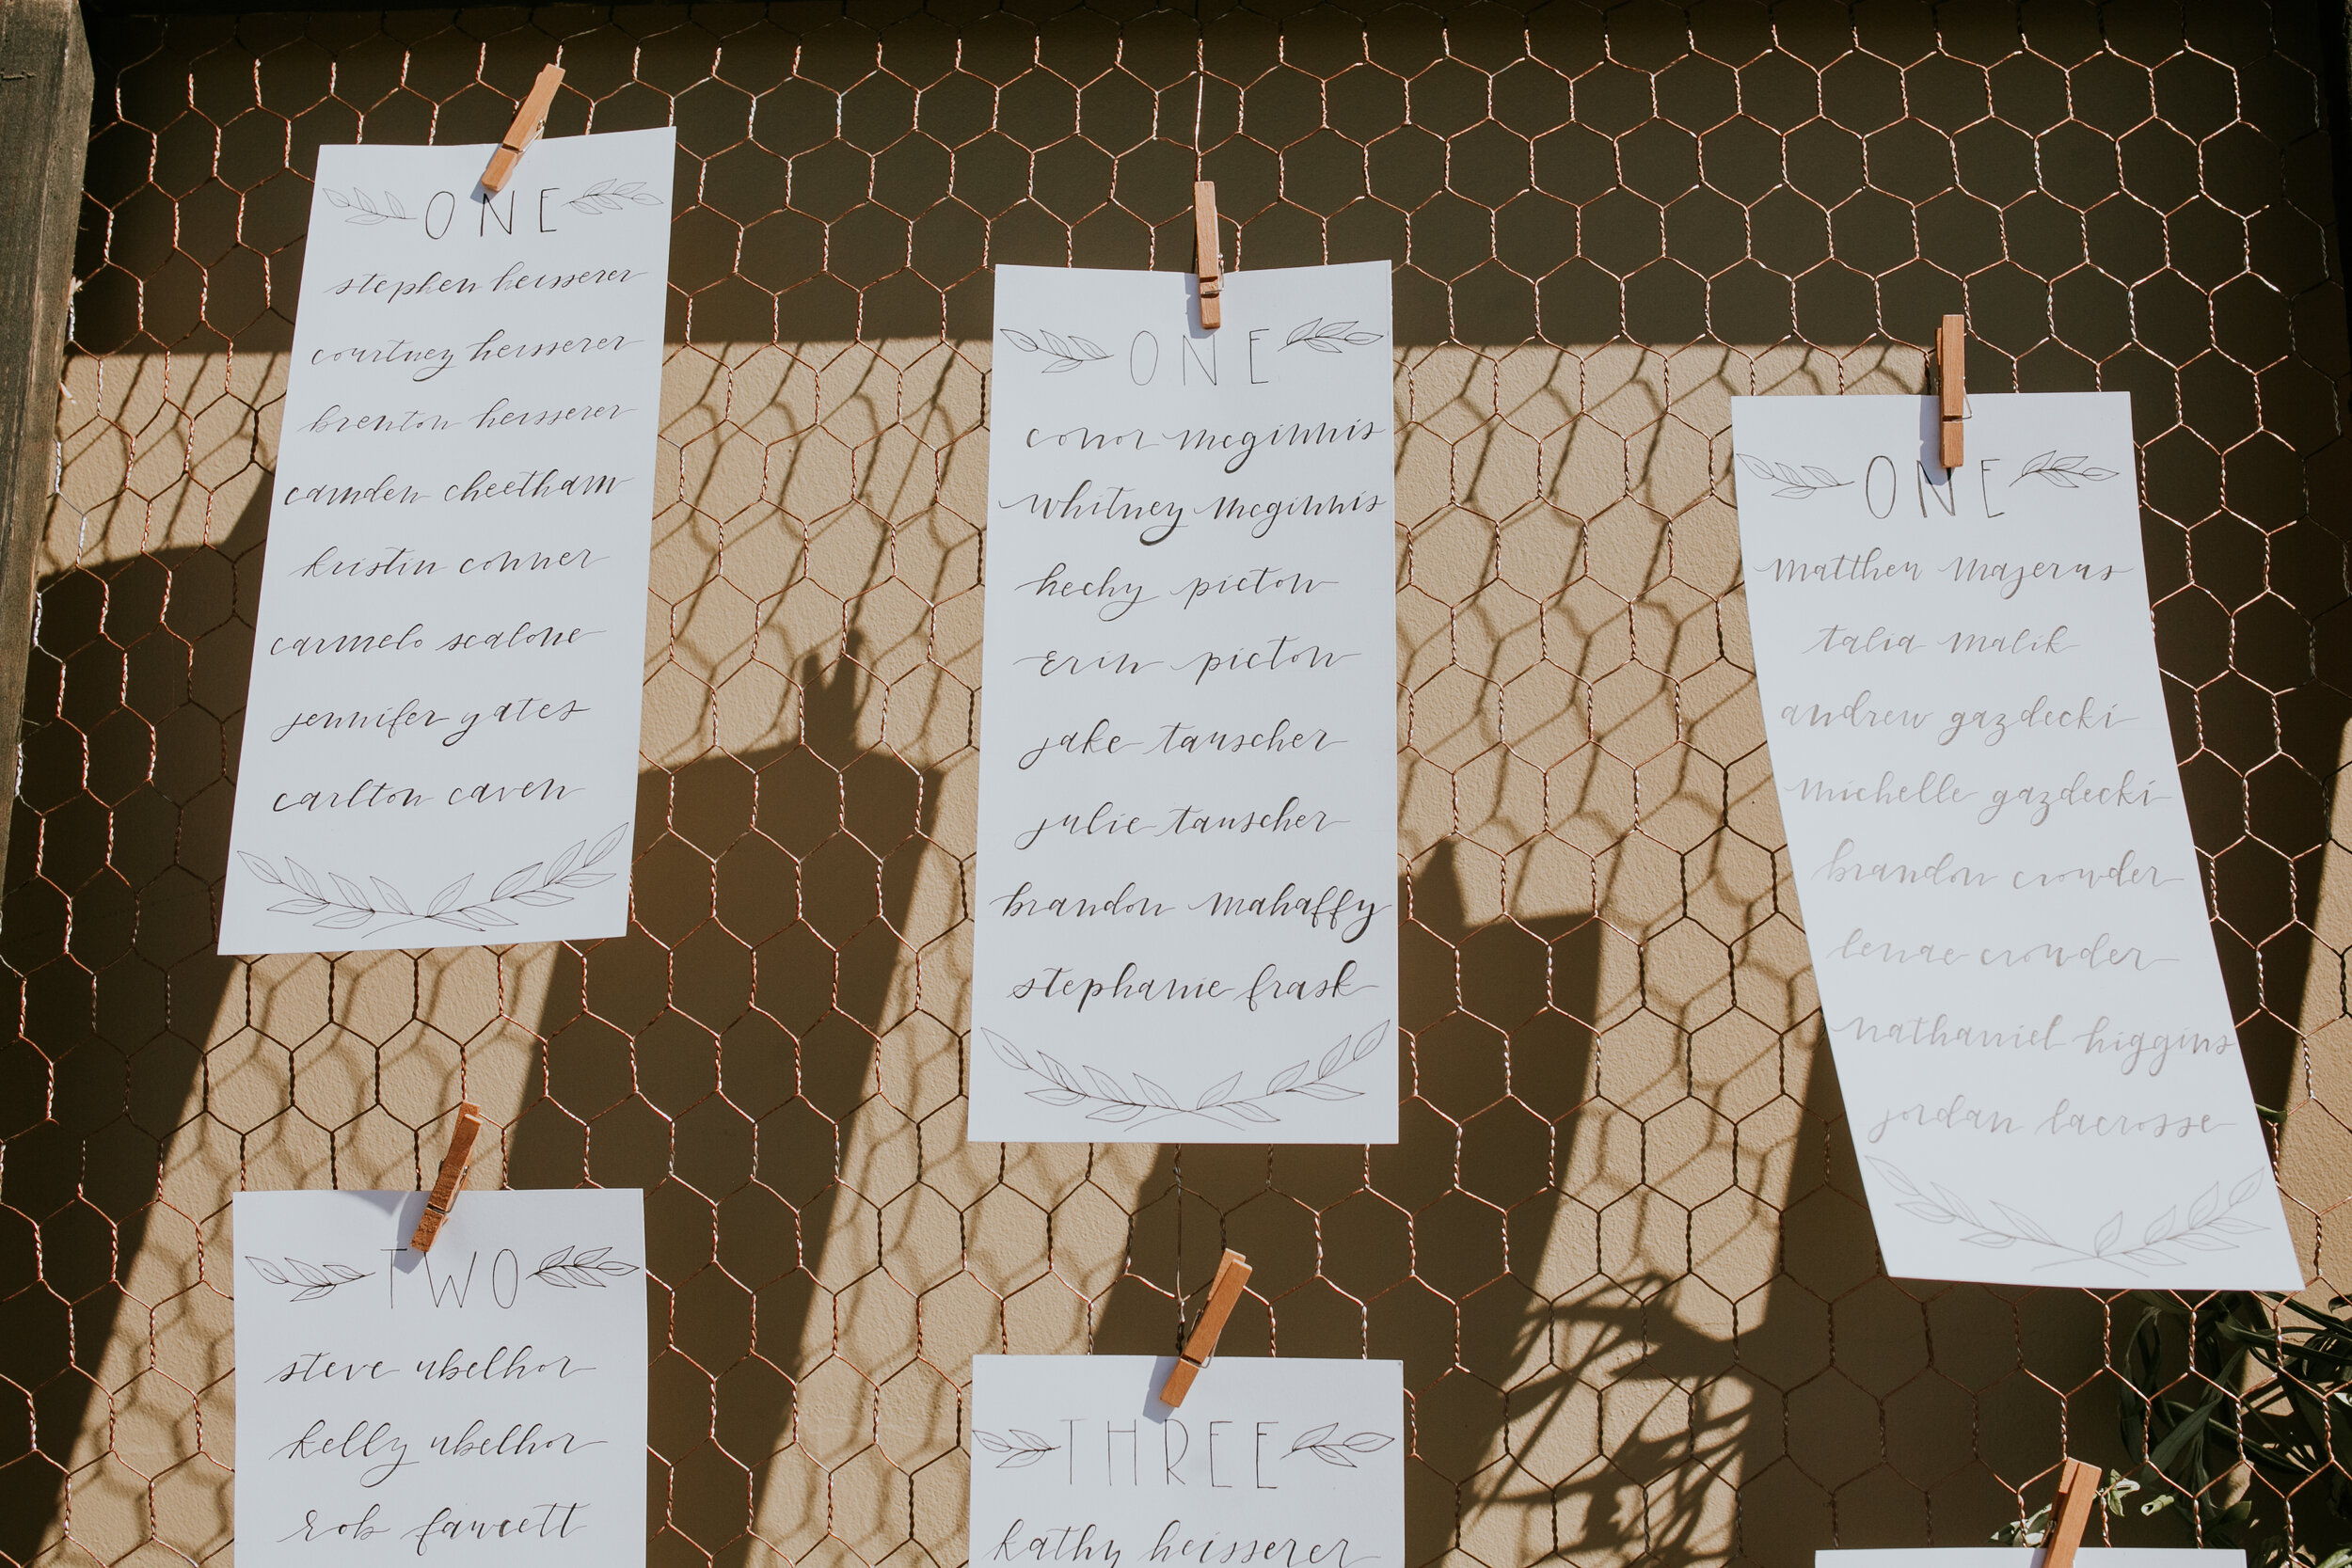 ONE
stephen heisserer
courtney heisserer
brenton heisserer
camden cheetham
kristin conner
carmelo scalone
jennifer yates
carlton caven
ONE
conor mcginnis
whitney mcginnis
hechy picton
erin picton
jake tauscher
julie tauscher
brandon mahaffy
stephanie frask
ONE
matthew majerus
talia malik
andrew gazdecki
michelle gazdecki
brandon crowder
lenae crowder
nathaniel higgins
jordan lacrosse
TWO
steve ubelhor
kelly ubelhor
rob fawcett
THREE
kathy heisserer